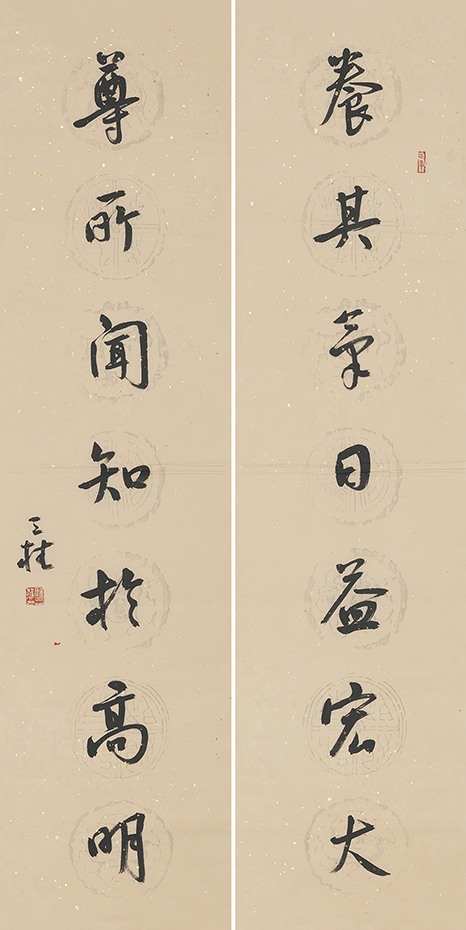 養其氣日益宏大
尊所聞知於高明